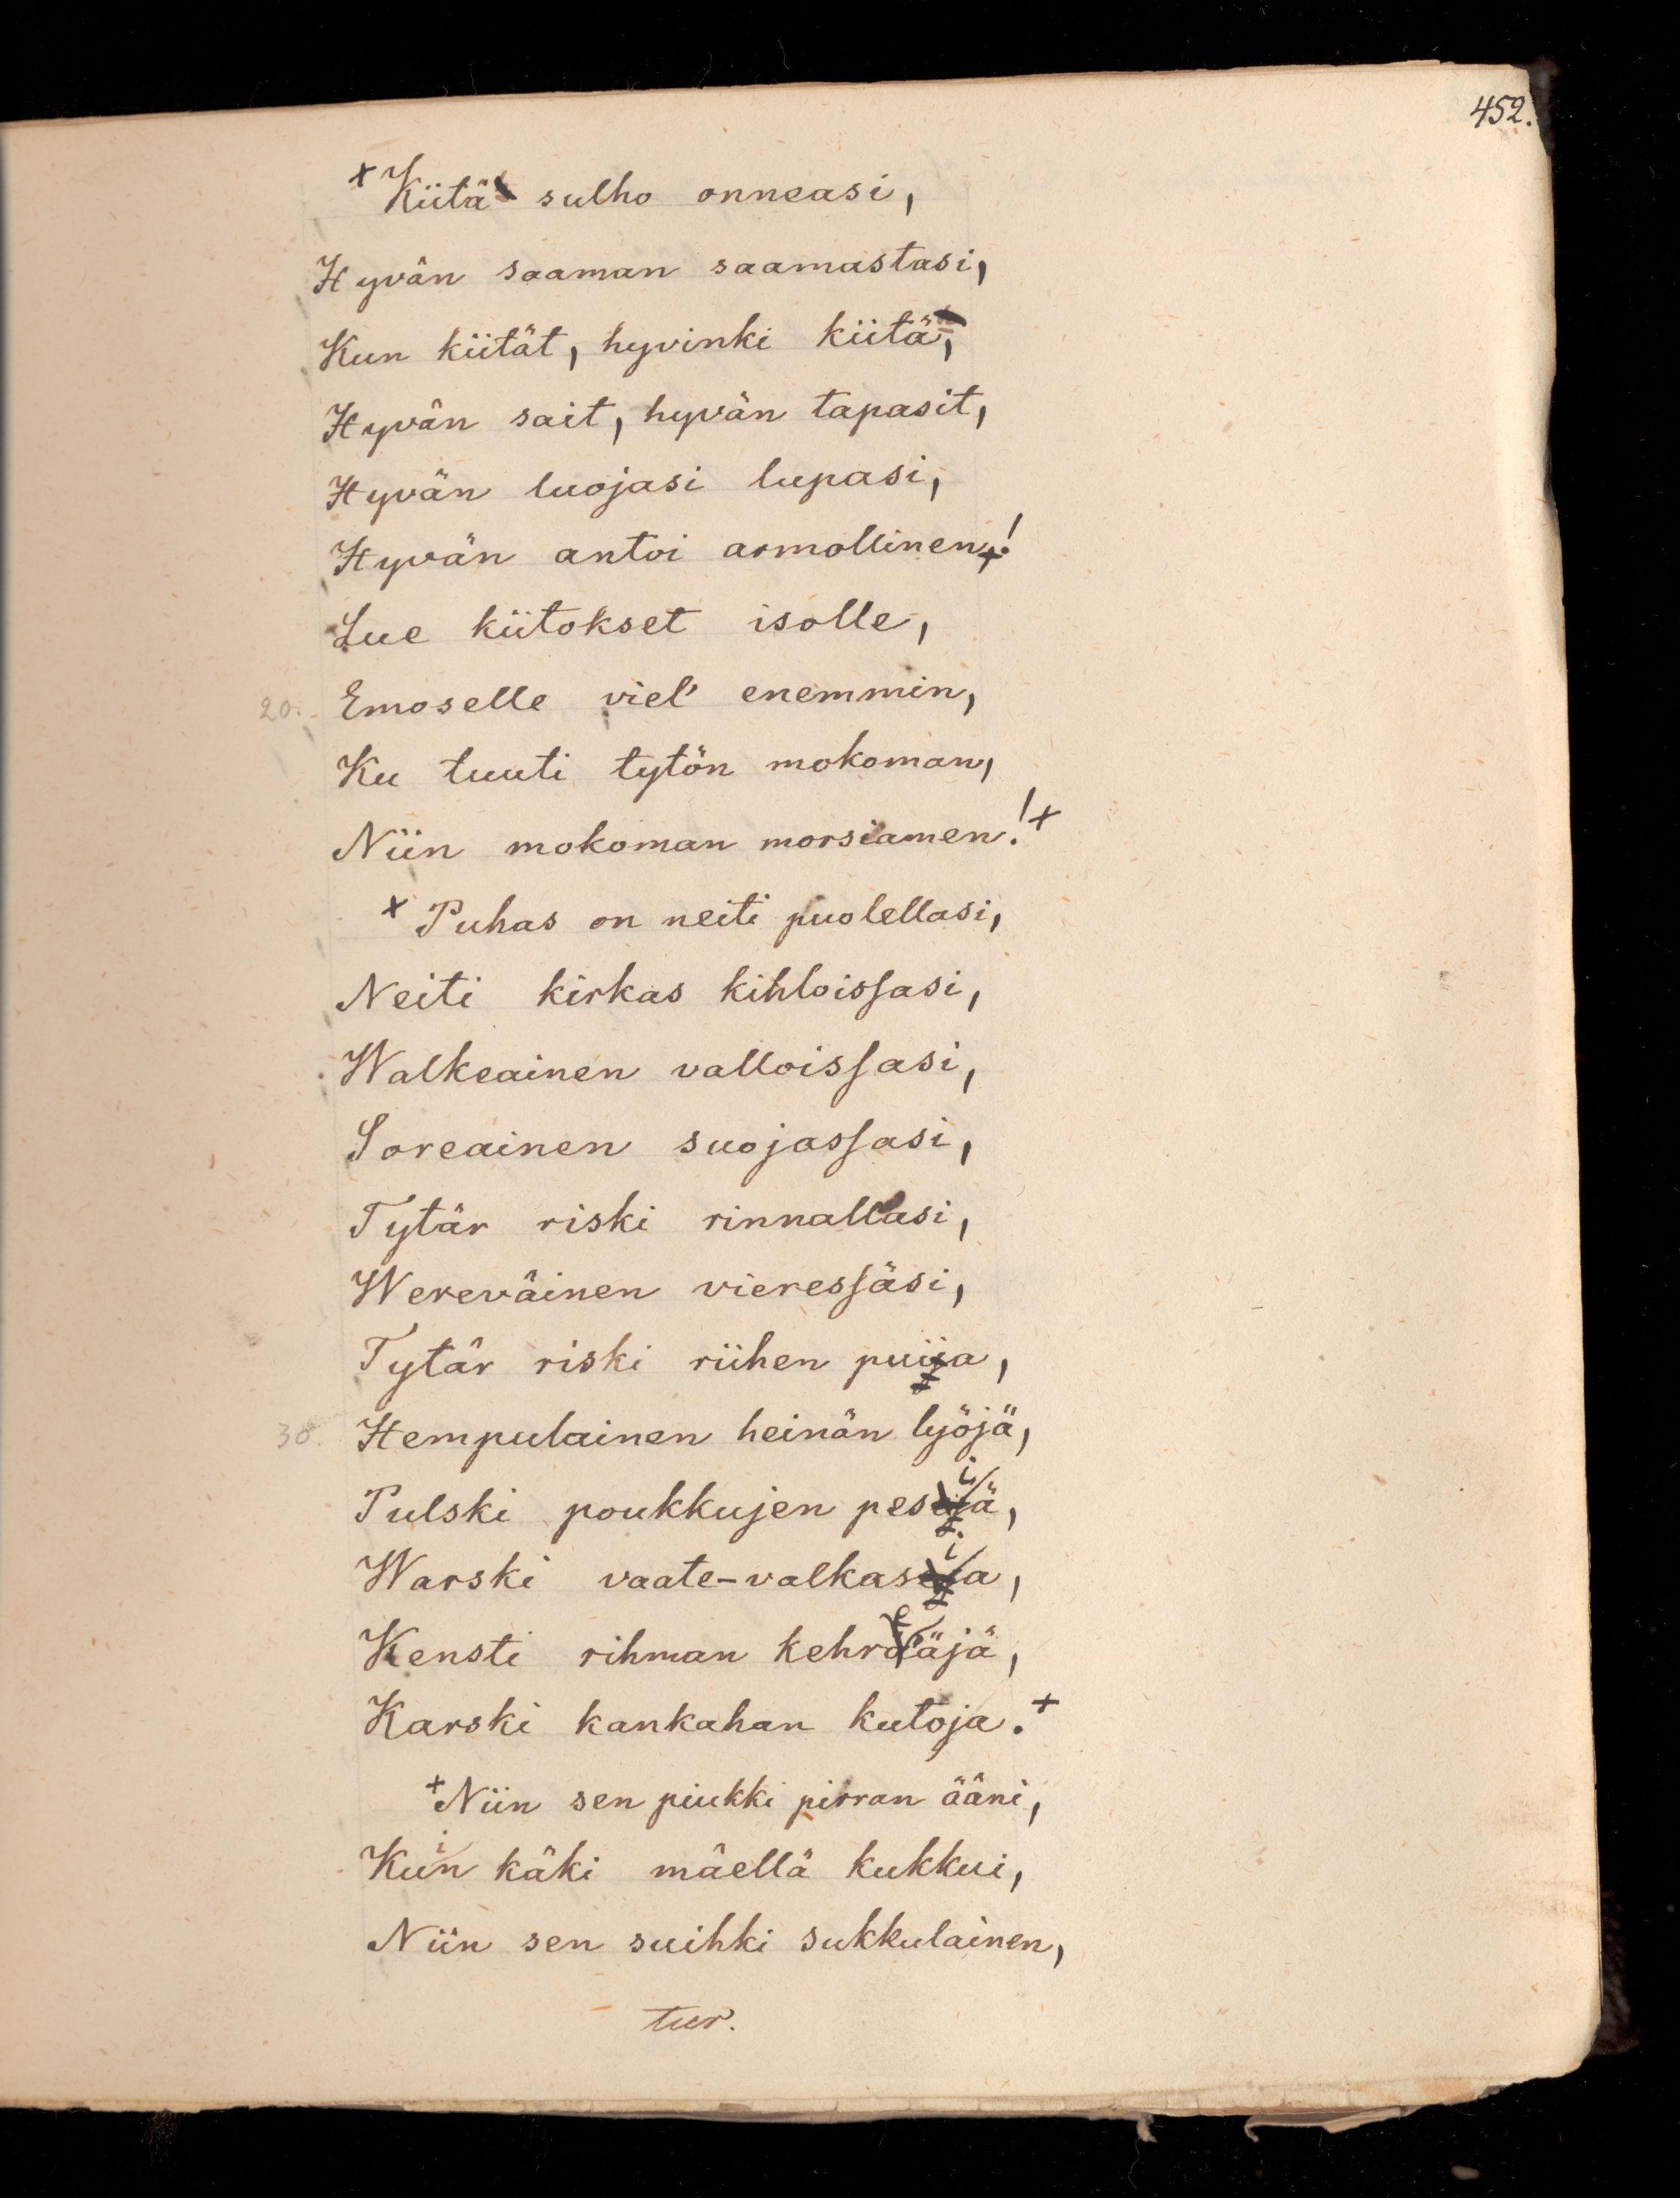 452.
+ Kiitä sulho onneasi,
Hyvän saaman saamastasi,
Kun kiität, hyvinki kiitä,
Hyvän sait, hyvän tapasit,
Hyvän luojasi lupasi,
Hyvän antoi armollinen!
Lue kiitokset isolle,
20. Emoselle viel' enemmin,
Ku tuuti tytön mokoman,
Niin mokoman morsiamen! +
+ Puhas on neiti puolellasi,
Neiti kirkas kihloissasi,
Walkeainen valloissasi,
Soreainen suojassasi,
Tytär riski rinnallasi,
Wereväinen vieressäsi,
Tytär riski riihen puija,
30. Hempulainen heinän lyöjä,
Pulski poukkujen pesijä,
Warski vaate-valkasija,
Kensti rihman kehreäjä,
Karski kankahan kutoja. +
+ Niin sen piukki pirran ääni,
Kuin käki mäellä kukkui,
Niin sen suihki sukkulainen,
tur.